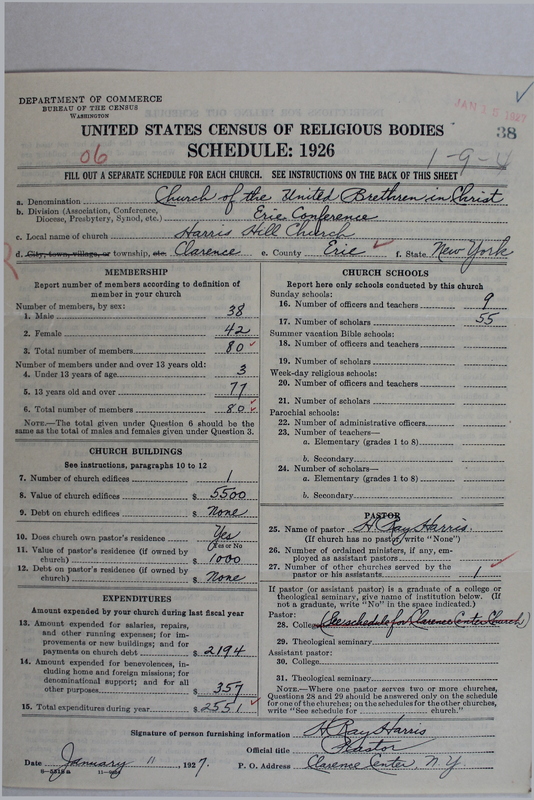 DEPARTMENT OF COMMERCE
BUREAU OF THE CENSUS
WASHINGTON
JAN 15 1927
UNITED STATES CENSUS OF RELIGIOUS BODIES
38
06
SCHEDULE: 1926
1-9-4
FILL OUT A SEPARATE SCHEDULE FOR EACH CHURCH. SEE INSTRUCTIONS ON THE BACK OF THIS SHEET
a. Denomination Church of the United Brethren in Christ
b. Division (Association, Conference, Diocese, Presbytery, Synod, etc.) Erie Conference
c. Local name of church Harris Hill Church
d. City, town, village, or township, etc. Clarence e. County Erie f. State New York
MEMBERSHIP
Report number of members according to definition of member in your church
Number of members, by sex:
1. Male 38
2. Female 42
3. Total number of members 80
Number of members under and over 13 years old:
4. Under 13 years of age 3
5. 13 years old and over 77
6. Total number of members 80
NOTE.—The total given under Question 6 should be the same as the total of males and females given under Question 3.
CHURCH BUILDINGS
See instructions, paragraphs 10 to 12
7. Number of church edifices 1
8. Value of church edifices $ 5500
9. Debt on church edifices $ None
10. Does church own pastor's residence Yes
(Yes or No
11. Value of pastor's residence (if owned by church) $ 1000
12. Debt on pastor's residence (if owned by church) $ None
EXPENDITURES
Amount expended by your church during last fiscal year
13. Amount expended for salaries, repairs, and other running expenses; for improvements or new buildings; and for payments on church debt $ 2194
14. Amount expended for benevolences, including home and foreign missions; for denominational support; and for all other purposes $ 357
15. Total expenditures during year $ 2551
CHURCH SCHOOLS
Report here only schools conducted by this church
Sunday schools:
16. Number of officers and teachers 9
17. Number of scholars 55
Summer vacation Bible schools:
18. Number of officers and teachers
19. Number of scholars
Week-day religious schools:
20. Number of officers and teachers
21. Number of scholars
Parochial schools:
22. Number of administrative officers
23. Number of teachers—
a. Elementary (grades 1 to 8)
b. Secondary
24. Number of scholars—
a. Elementary (grades 1 to 8)
b. Secondary
PASTOR
25. Name of pastor H Ray Harris
(If church has no pastor, write "None")
26. Number of ordained ministers, if any, employed as assistant pastors
27. Number of other churches served by the pastor or his assistants 1
If pastor (or assistant pastor) is a graduate of a college or theological seminary, give name of institution below. (If not a graduate, write "No" in the space indicated.)
Pastor:
28. College (See schedule for Clarence Center Church)
29. Theological seminary
Assistant pastor:
30. College
31. Theological seminary
NOTE.—Where one pastor serves two or more churches, Questions 28 and 29 should be answered only on the schedule for one of the churches; on the schedules for the other churches, write "See schedule for church."
Signature of person furnishing information H Ray Harris
Official title Pastor
Date January 11, 1927. P. O. Address Clarence Center, N.Y.